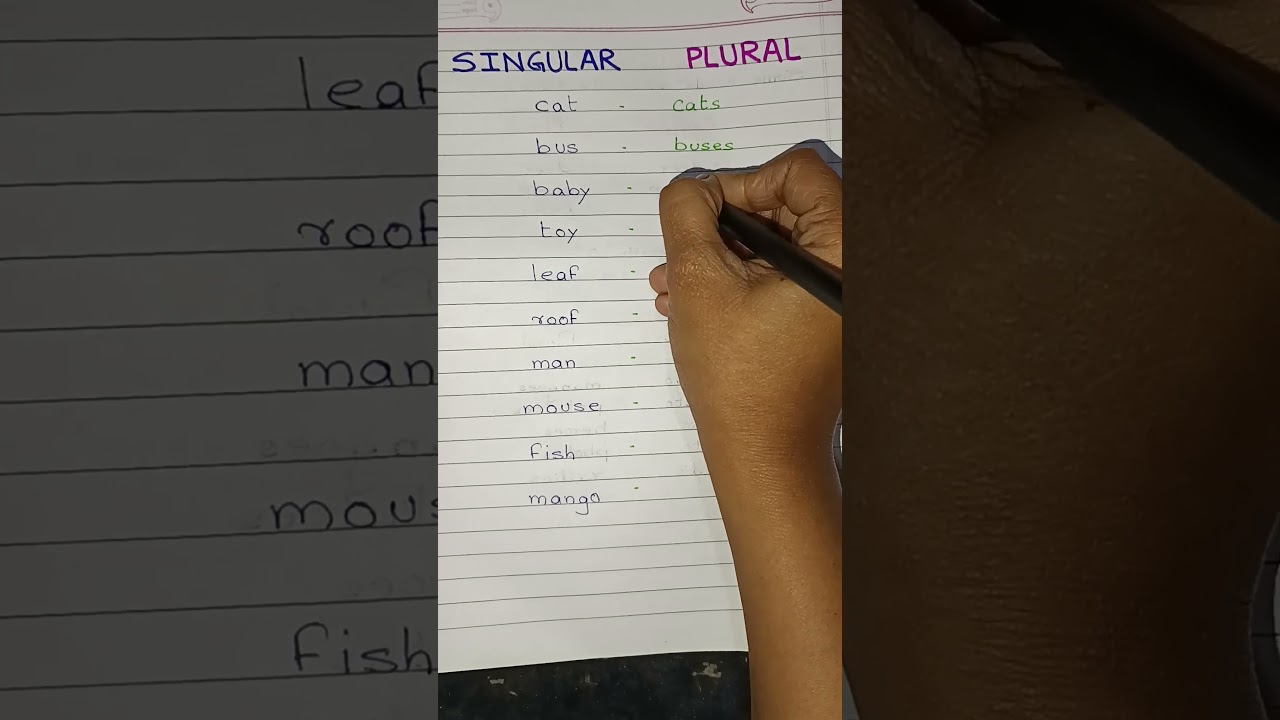 SINGULAR PLURAL
cat - cats
bus - buses
baby -
toy -
leaf -
roof -
man -
mouse -
fish -
mango -
leaf
roof
man
mous
fish